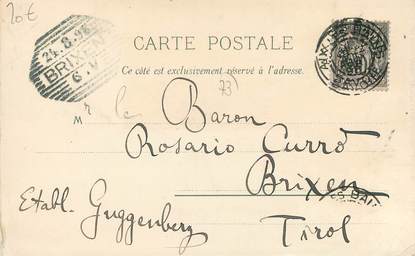 20€
24.8.98
BRIXEN
6.V
CARTE POSTALE
Ce côté est exclusivement réservé à l'adresse.
73)
AIX-LES-BAINS
Mr le Baron
Rosario Currò
Brixen
Etabl. Guggenberg
Tirol